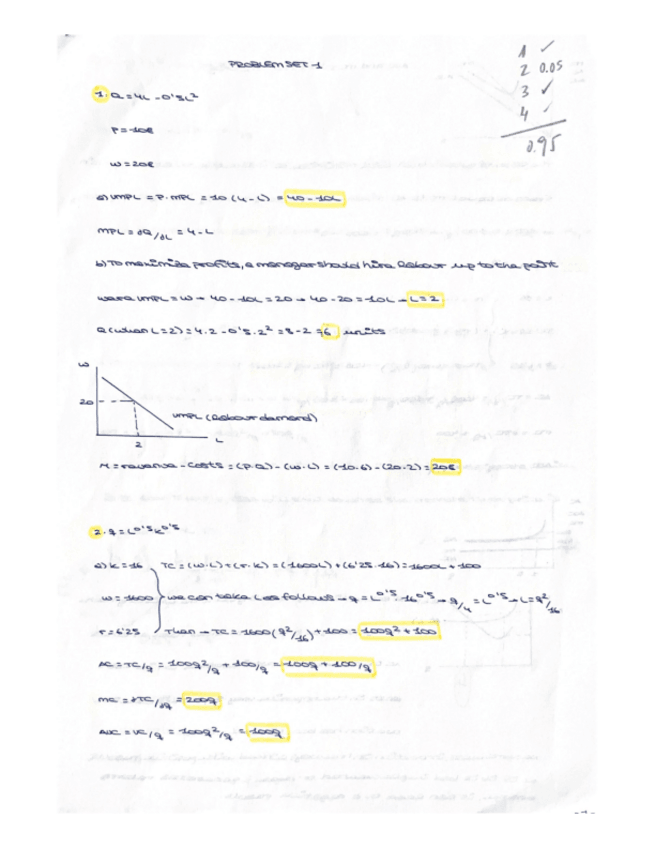 PROBLEM SET 1
1 ✓
2 0.05
3 ✓
4 ✓
0.95
1. Q = 4L - 0'5L²
P = 10€
W = 20€
a) VMPL = P · MPL = 10 (4 - L) = 40 - 10L
MPL = ∂Q/∂L = 4 - L
b) To maximize profits, a manager should hire labour up to the point
were VMPL = W → 40 - 10L = 20 → 40 - 20 = 10L → L = 2
Q (when L = 2) = 4·2 - 0'5·2² = 8 - 2 = 6 units
W
20
VMPL (labour demand)
2
L
π = revenue - costs = (P·Q) - (W·L) = (10·6) - (20·2) = 20€
2. q = L⁰'⁵K⁰'⁵
a) K = 16 TC = (W·L) + (r·K) = (1600L) + (6'25·16) = 1600L + 100
W = 1600 we can take L as follows → q = L⁰'⁵·16⁰'⁵ → q/4 = L⁰'⁵ → L = q²/16
r = 6'25 Then → TC = 1600 (q²/16) + 100 = 100q² + 100
AC = TC/q = 100q²/q + 100/q = 100q + 100/q
MC = ∂TC/∂q = 200q
AVC = VC/q = 100q²/q = 100q